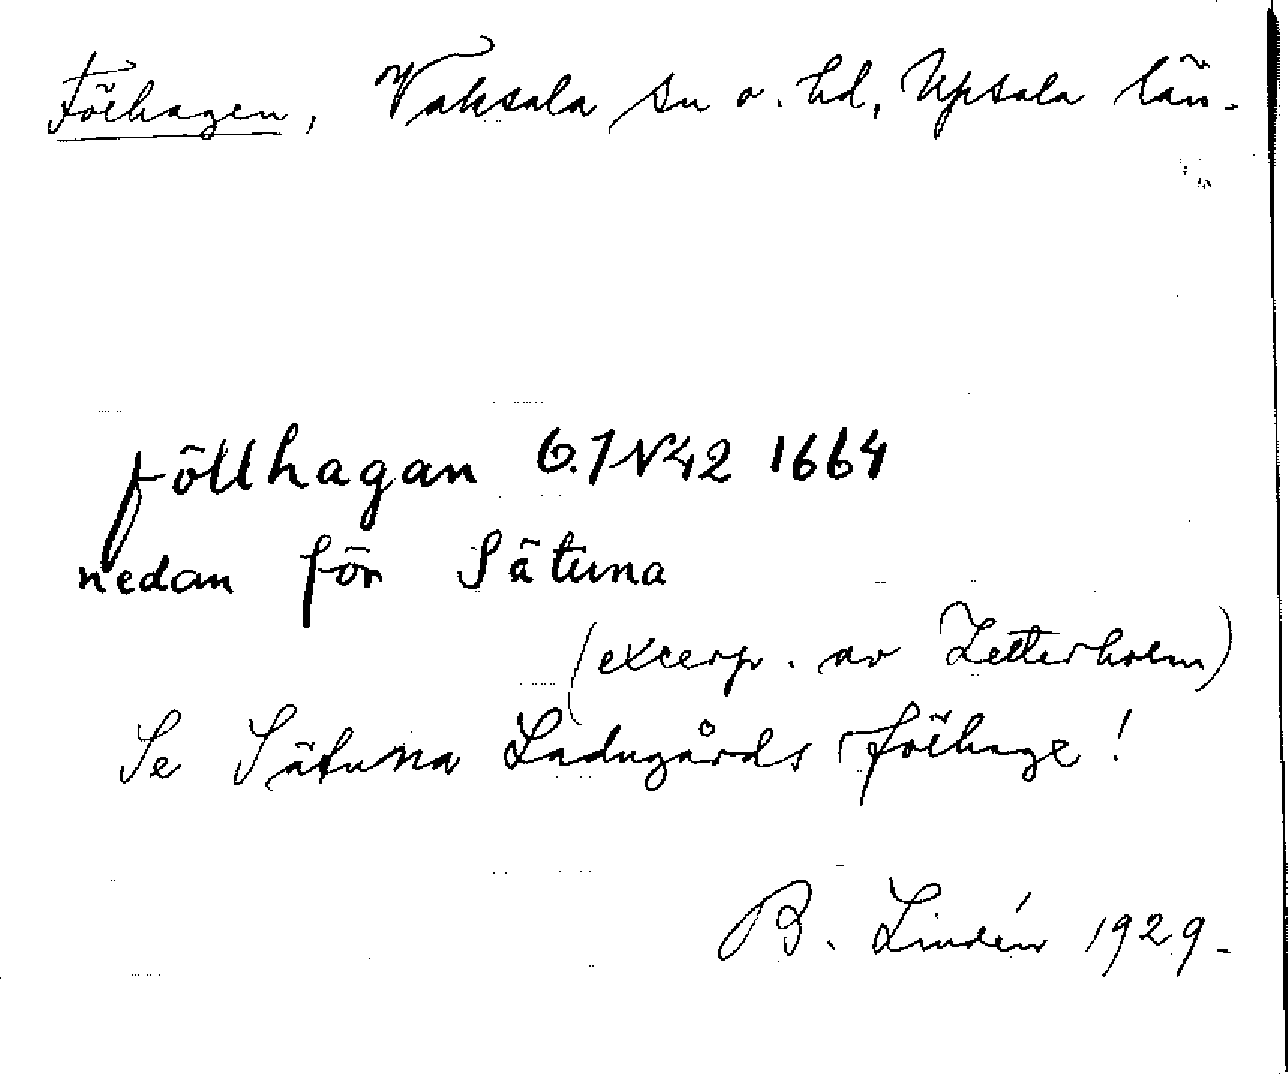 Fölhagen, Vaksala sn o. hd, Upsala län.
föllhagan 6.7 N 42 1664
nedan för Sätuna
(excerp. av Zetterholm)
Se Sätuna Ladugårds fölhage!
B. Lindén 1929.